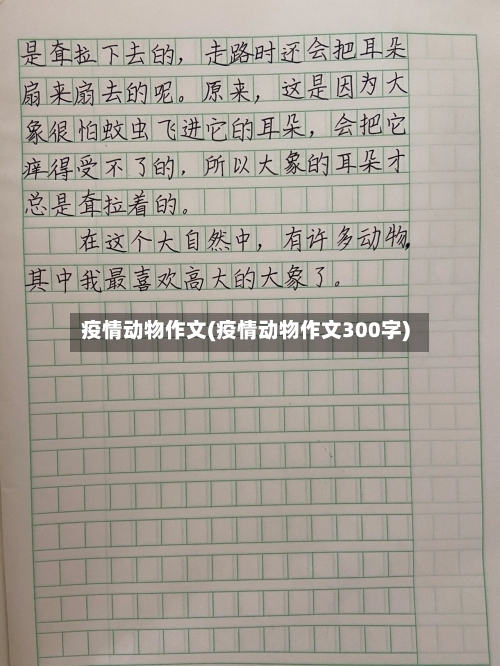 是耷拉下去的，走路时还会把耳朵
扇来扇去的呢。原来，这是因为大
象很怕蚊虫飞进它的耳朵，会把它
痒得受不了的，所以大象的耳朵才
总是耷拉着的。
在这个大自然中，有许多动物，
其中我最喜欢高大的大象了。
疫情动物作文(疫情动物作文300字)